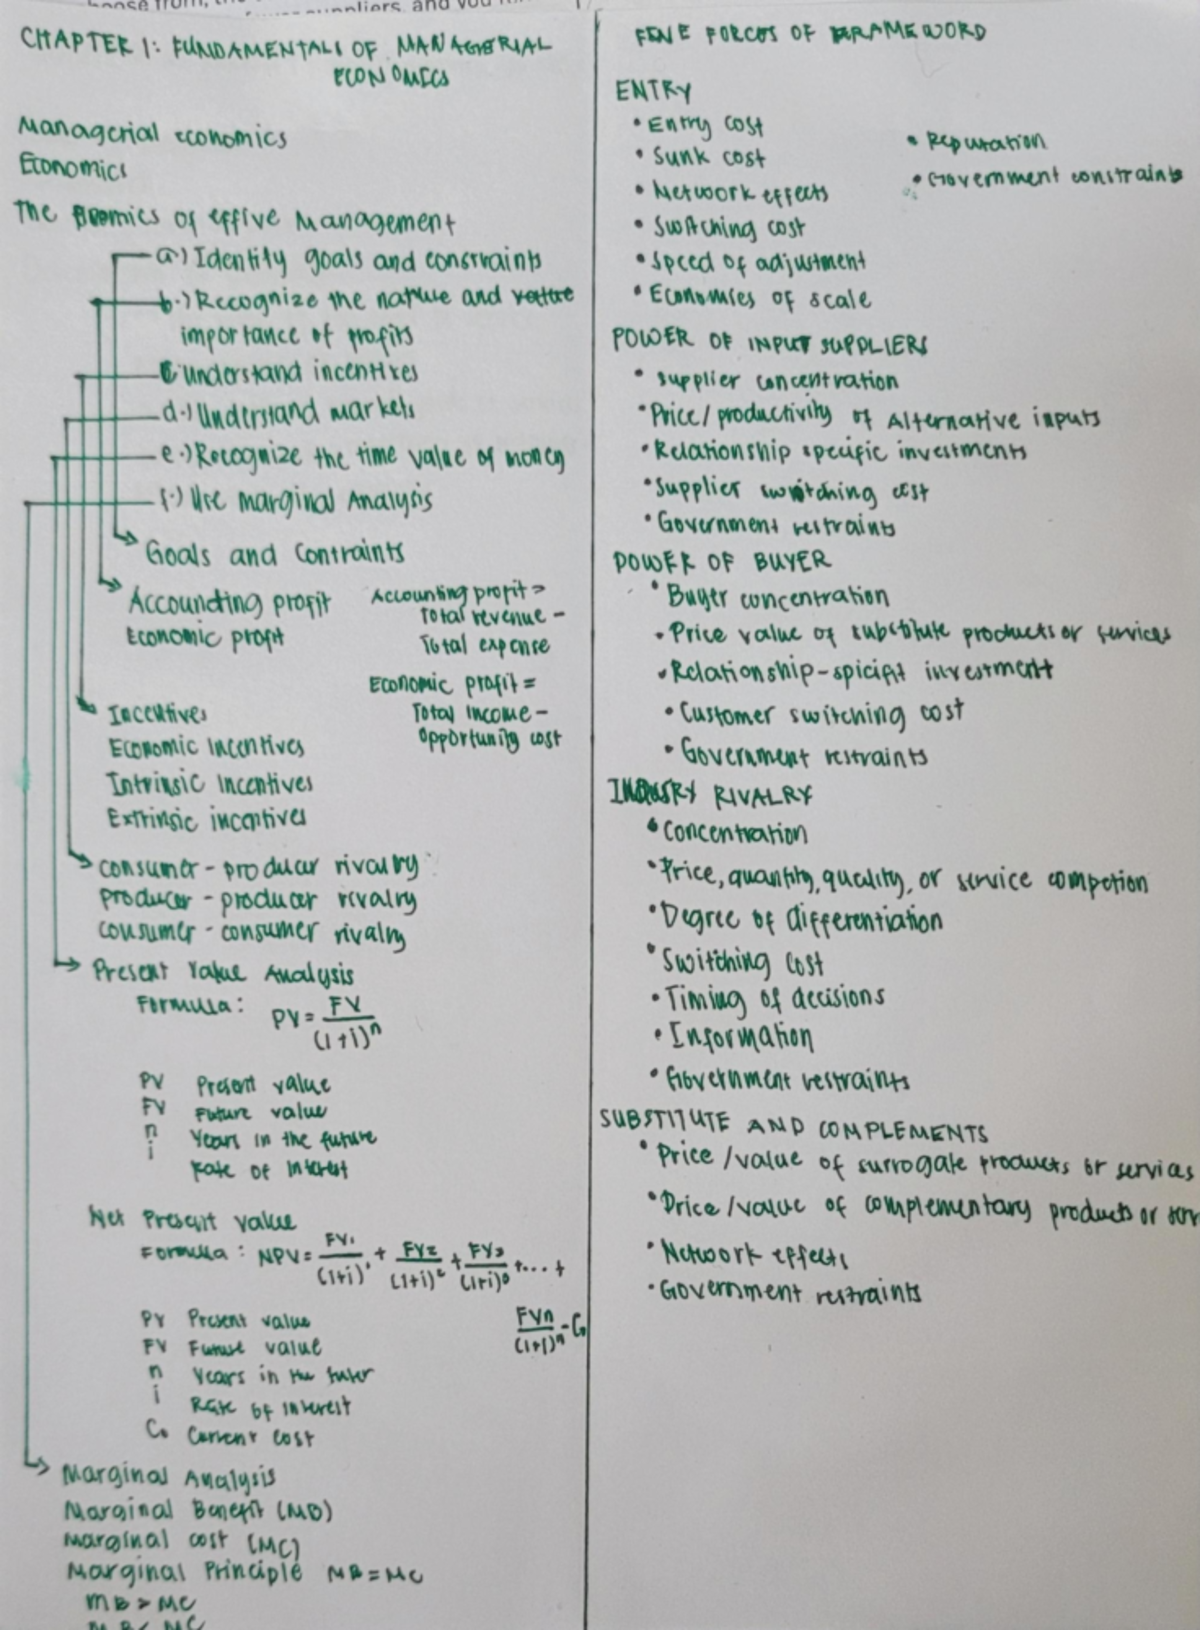 CHAPTER 1: FUNDAMENTALS OF MANAGERIAL
ECONOMICS
Managerial economics
Economics
The of effive Management
a.) Identify goals and constraints
b.) Recognize the nature and
importance of profits
c understand incentives
d.) Understand markets
e.) Recognize the time value of money
f.) Use marginal Analysis
Goals and Contraints
Accounding profit
Economic profit
Accounting profit =
Total revenue -
Total expense
Economic profit =
Total Income -
Opportunity cost
Incentives
Economic Incentives
Intrinsic Incentives
Extrinsic incentives
consumer - producer rivalry
producer - producer rivalry
consumer - consumer rivalry
Present Value Analysis
Formula: PV = FV / (1+i)^n
PV Present value
FV Future value
n Years in the future
i Rate of Interest
Net Present value
Formula: NPV = FV1 / (1+i)^1 + FV2 / (1+i)^2 + FV3 / (1+i)^3 + ... +
FVn / (1+i)^n - C0
PV Present value
FV Future value
n Years in the
i Rate of interest
C0 Current cost
Marginal Analysis
Marginal Benefit (MB)
Marginal cost (MC)
Marginal Principle MB = MC
MB > MC
MB < MC
FIVE FORCES OF FRAMEWORD
ENTRY
• Entry cost
• Sunk cost
• Network effects
• Switching cost
• Speed of adjustment
• Economies of scale
• Reputation
• Government constraints
POWER OF INPUT SUPPLIERS
• Supplier concentration
• Price/productivity of Alternative inputs
• Relationship specific investments
• Supplier switching cost
• Government restraints
POWER OF BUYER
• Buyer concentration
• Price value of substitute products or services
• Relationship-spicifit investment
• Customer switching cost
• Government restraints
INDUSRY RIVALRY
• Concentration
• Price, quantity, quality, or service compction
• Degree of differentiation
• Switching cost
• Timing of decisions
• Information
• Government restraints
SUBSTITUTE AND COMPLEMENTS
• Price/value of surrogate products or services
• Price/value of complementary products or
• Network effects
• Government restraints